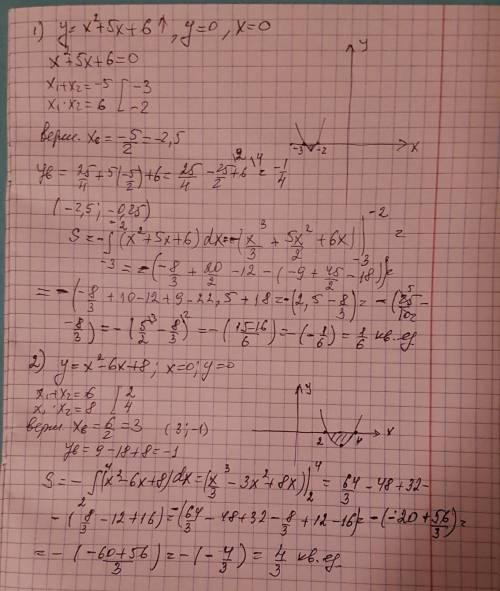 1) y = x²+5x+6 ↑, y=0, x=0
x²+5x+6=0
x₁+x₂=-5 [ -3
x₁·x₂=6 [ -2
верш. xв = -5/2 = -2,5
yв = 25/4 + 5(-5/2) + 6 = 25/4 - 25/2 + 6 = -1/4
(-2,5; -0,25)
y
-3 -2 x
S = -∫₋₃⁻² (x²+5x+6) dx = -(x³/3 + 5x²/2 + 6x) |₋₃⁻² =
= -(-8/3 + 20/2 - 12 - (-9 + 45/2 - 18)) =
= -(-8/3 + 10 - 12 + 9 - 22,5 + 18 = -(2,5 - 8/3) = -(25/10 -
- 8/3) = -(5/2 - 8/3) = -(15-16/6) = -(-1/6) = 1/6 кв. ед.
2) y = x²-6x+8; x=0; y=0
x₁+x₂=6 [ 2
x₁·x₂=8 [ 4
верш xв = 6/2 = 3 (3; -1)
yв = 9-18+8 = -1
y
2 4 x
S = -∫₂⁴ (x²-6x+8) dx = (x³/3 - 3x² + 8x) |₂⁴ = 64/3 - 48 + 32 -
- (8/3 - 12 + 16) = -(64/3 - 48 + 32 - 8/3 + 12 - 16) = -(-20 + 56/3) =
= -(-60+56/3) = -(-4/3) = 4/3 кв. ед.